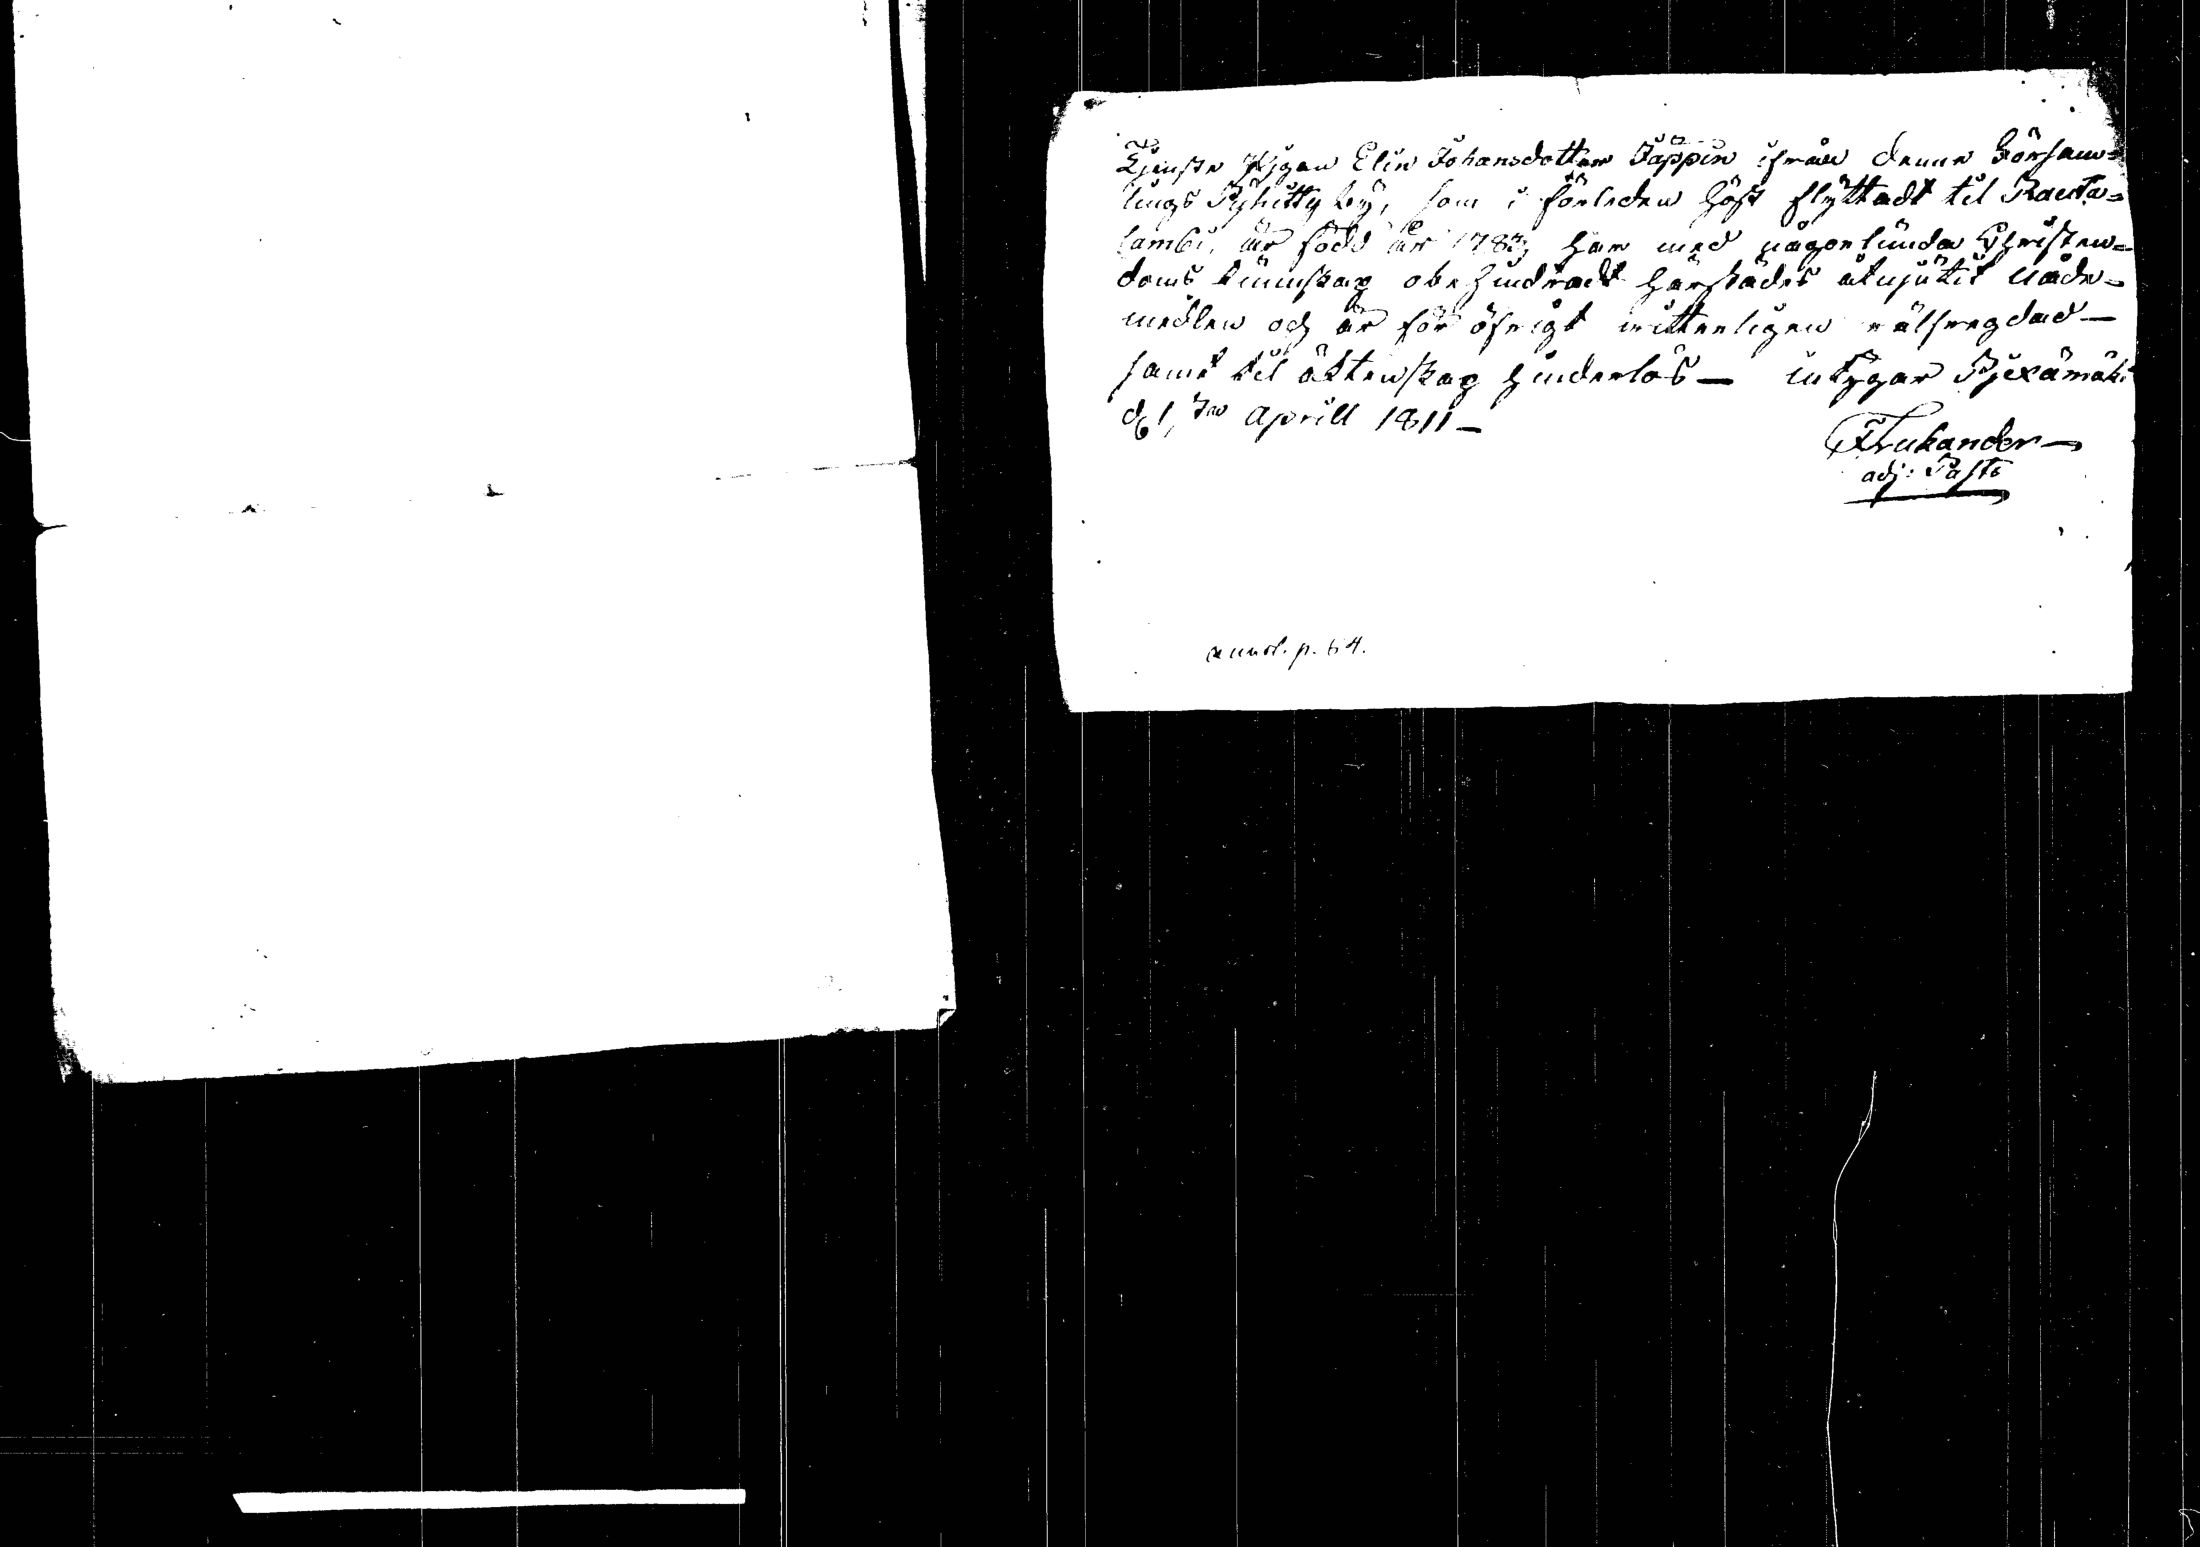 Tjenste Pigan Elin Johansdotter Tappin ifrån denne Försam=
lings Pyhitty by, som i förleden höst flyttadt til Rauta=
lambi, är född år 1783, har med någorlunda Christen=
doms kunnskap obehindradt härstädes åtnjutit nåde=
medlen och är för öfrigt witterligen wälfregdad —
samt til äktenskap hinderlös — intygar Pjexämäki
d. 1, Aprill 1811 —
Lukander
adj: Past:
annot. p. 64.